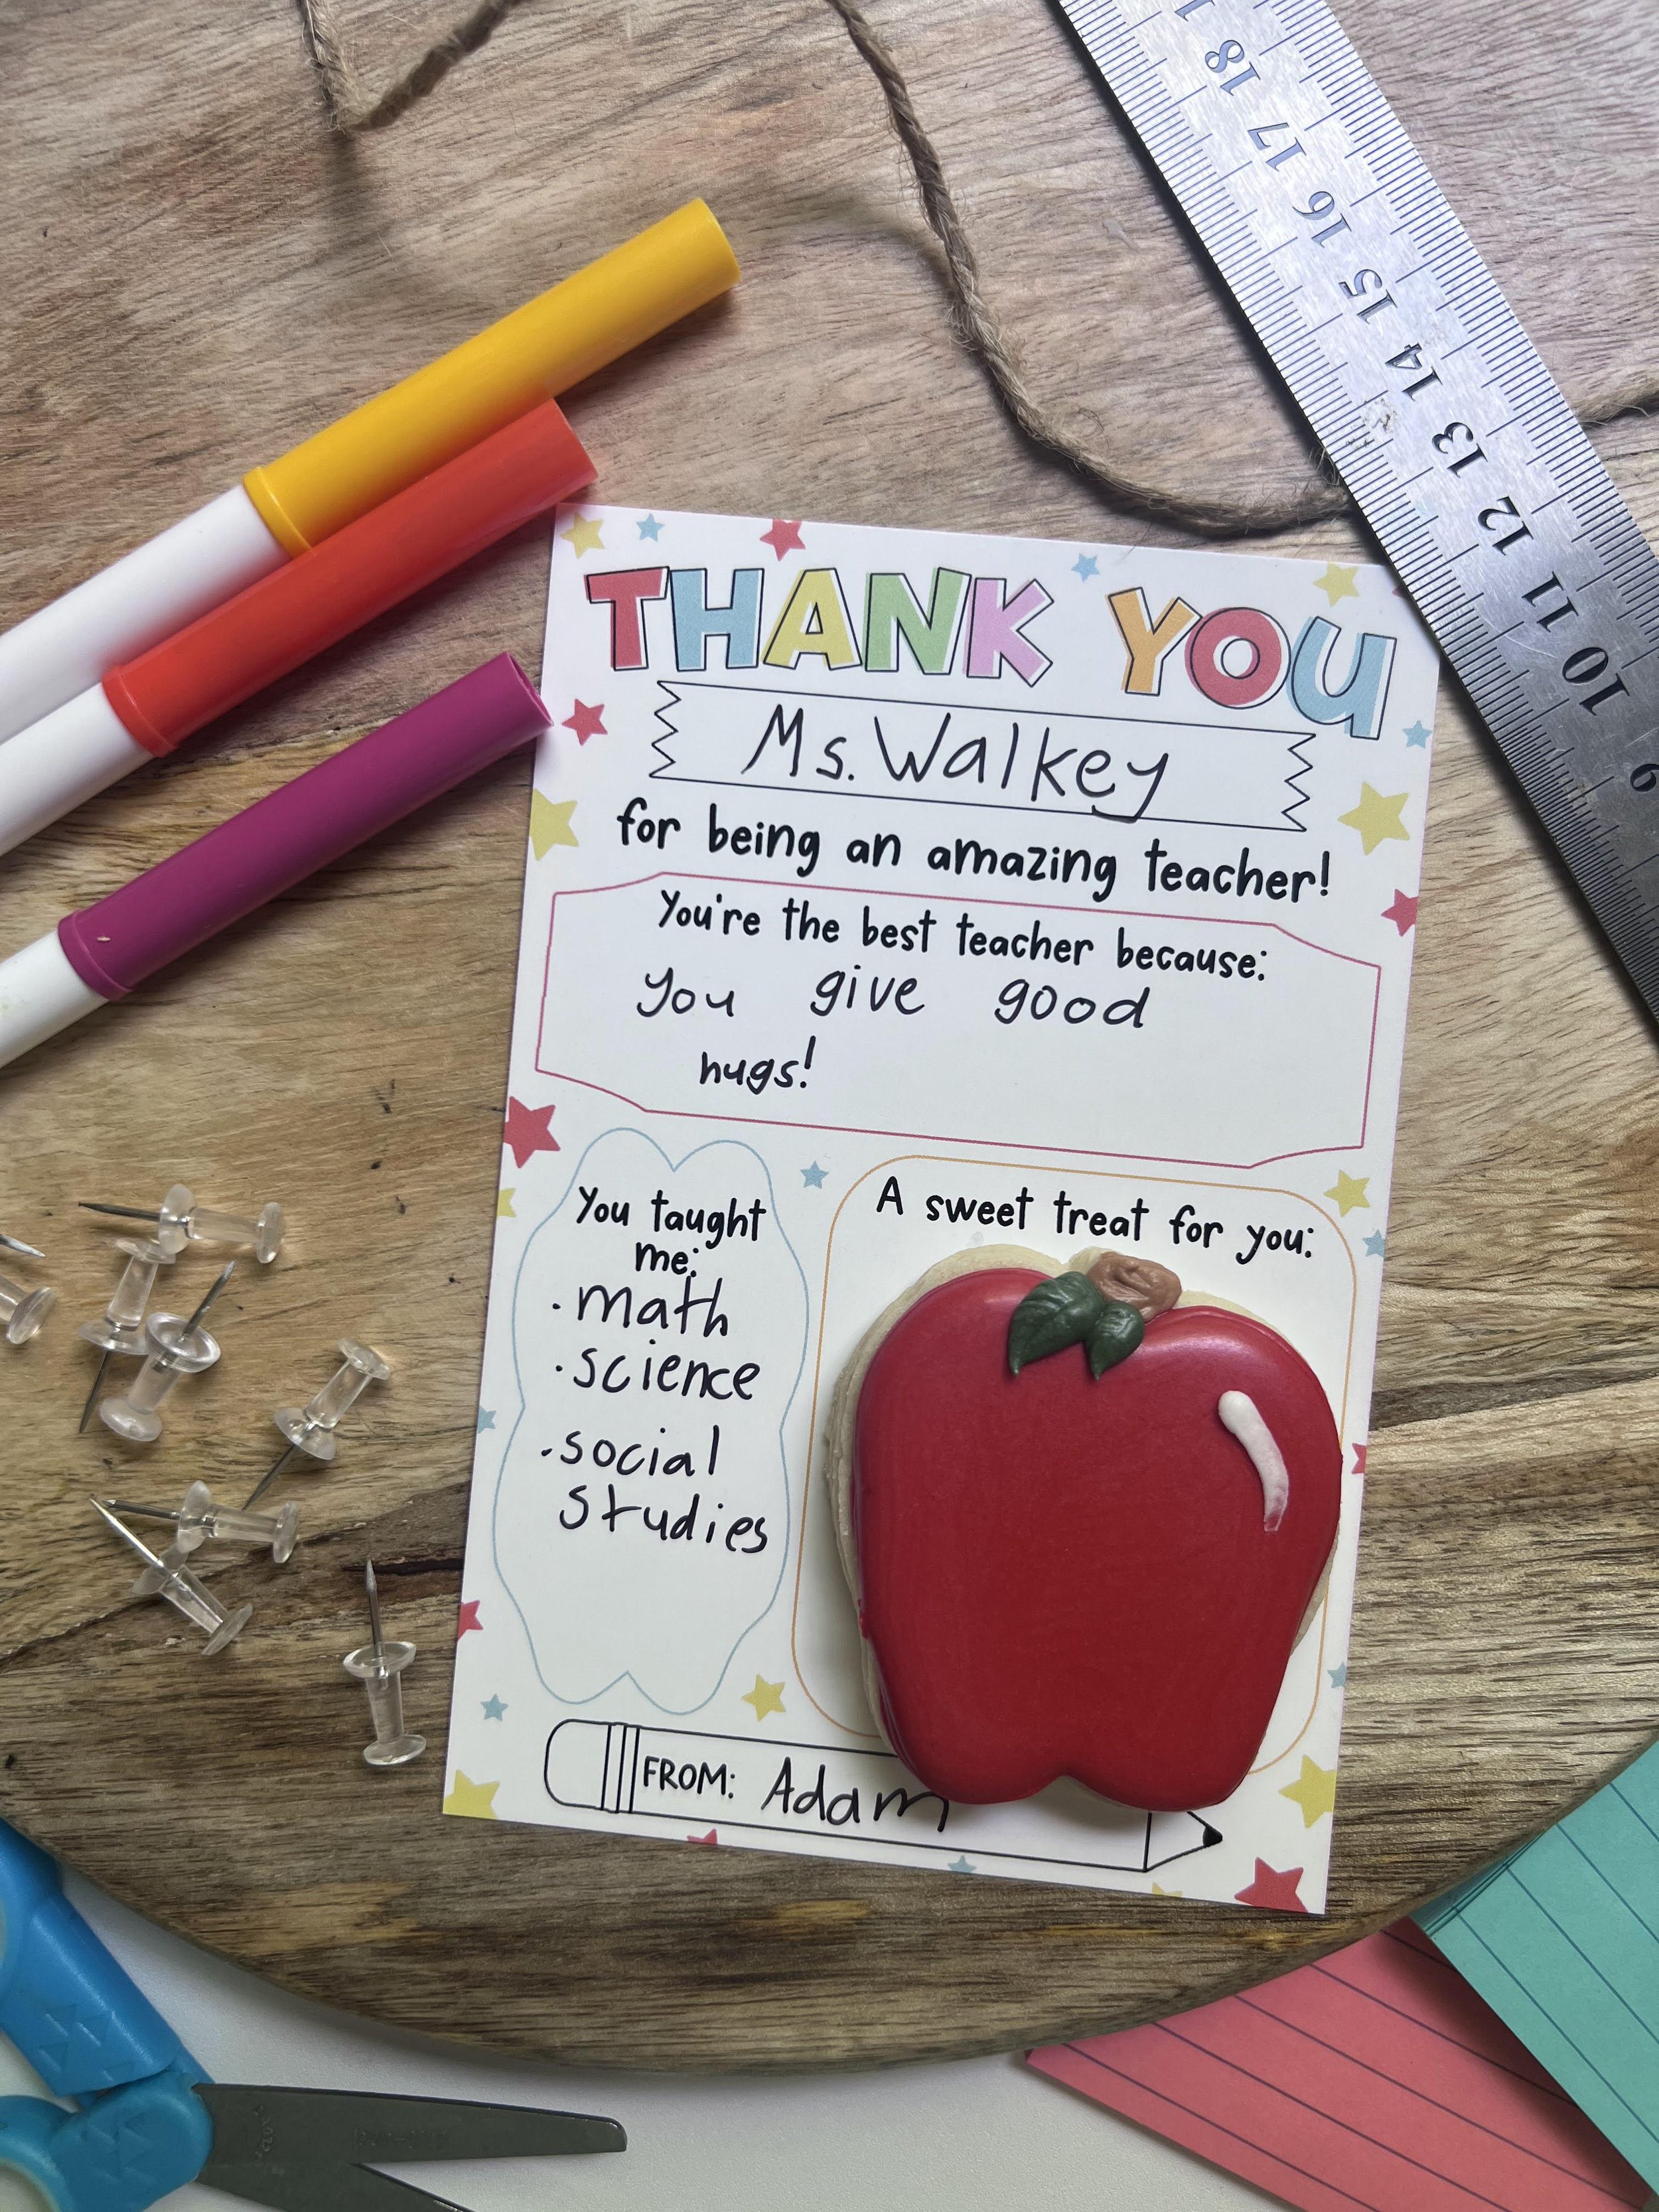 18
17
16
15
14
13
12
11
10
9
THANK YOU
Ms. Walkey
for being an amazing teacher!
You're the best teacher because:
you give good
hugs!
You taught
me:
·math
·science
·social
studies
A sweet treat for you:
FROM: Adam